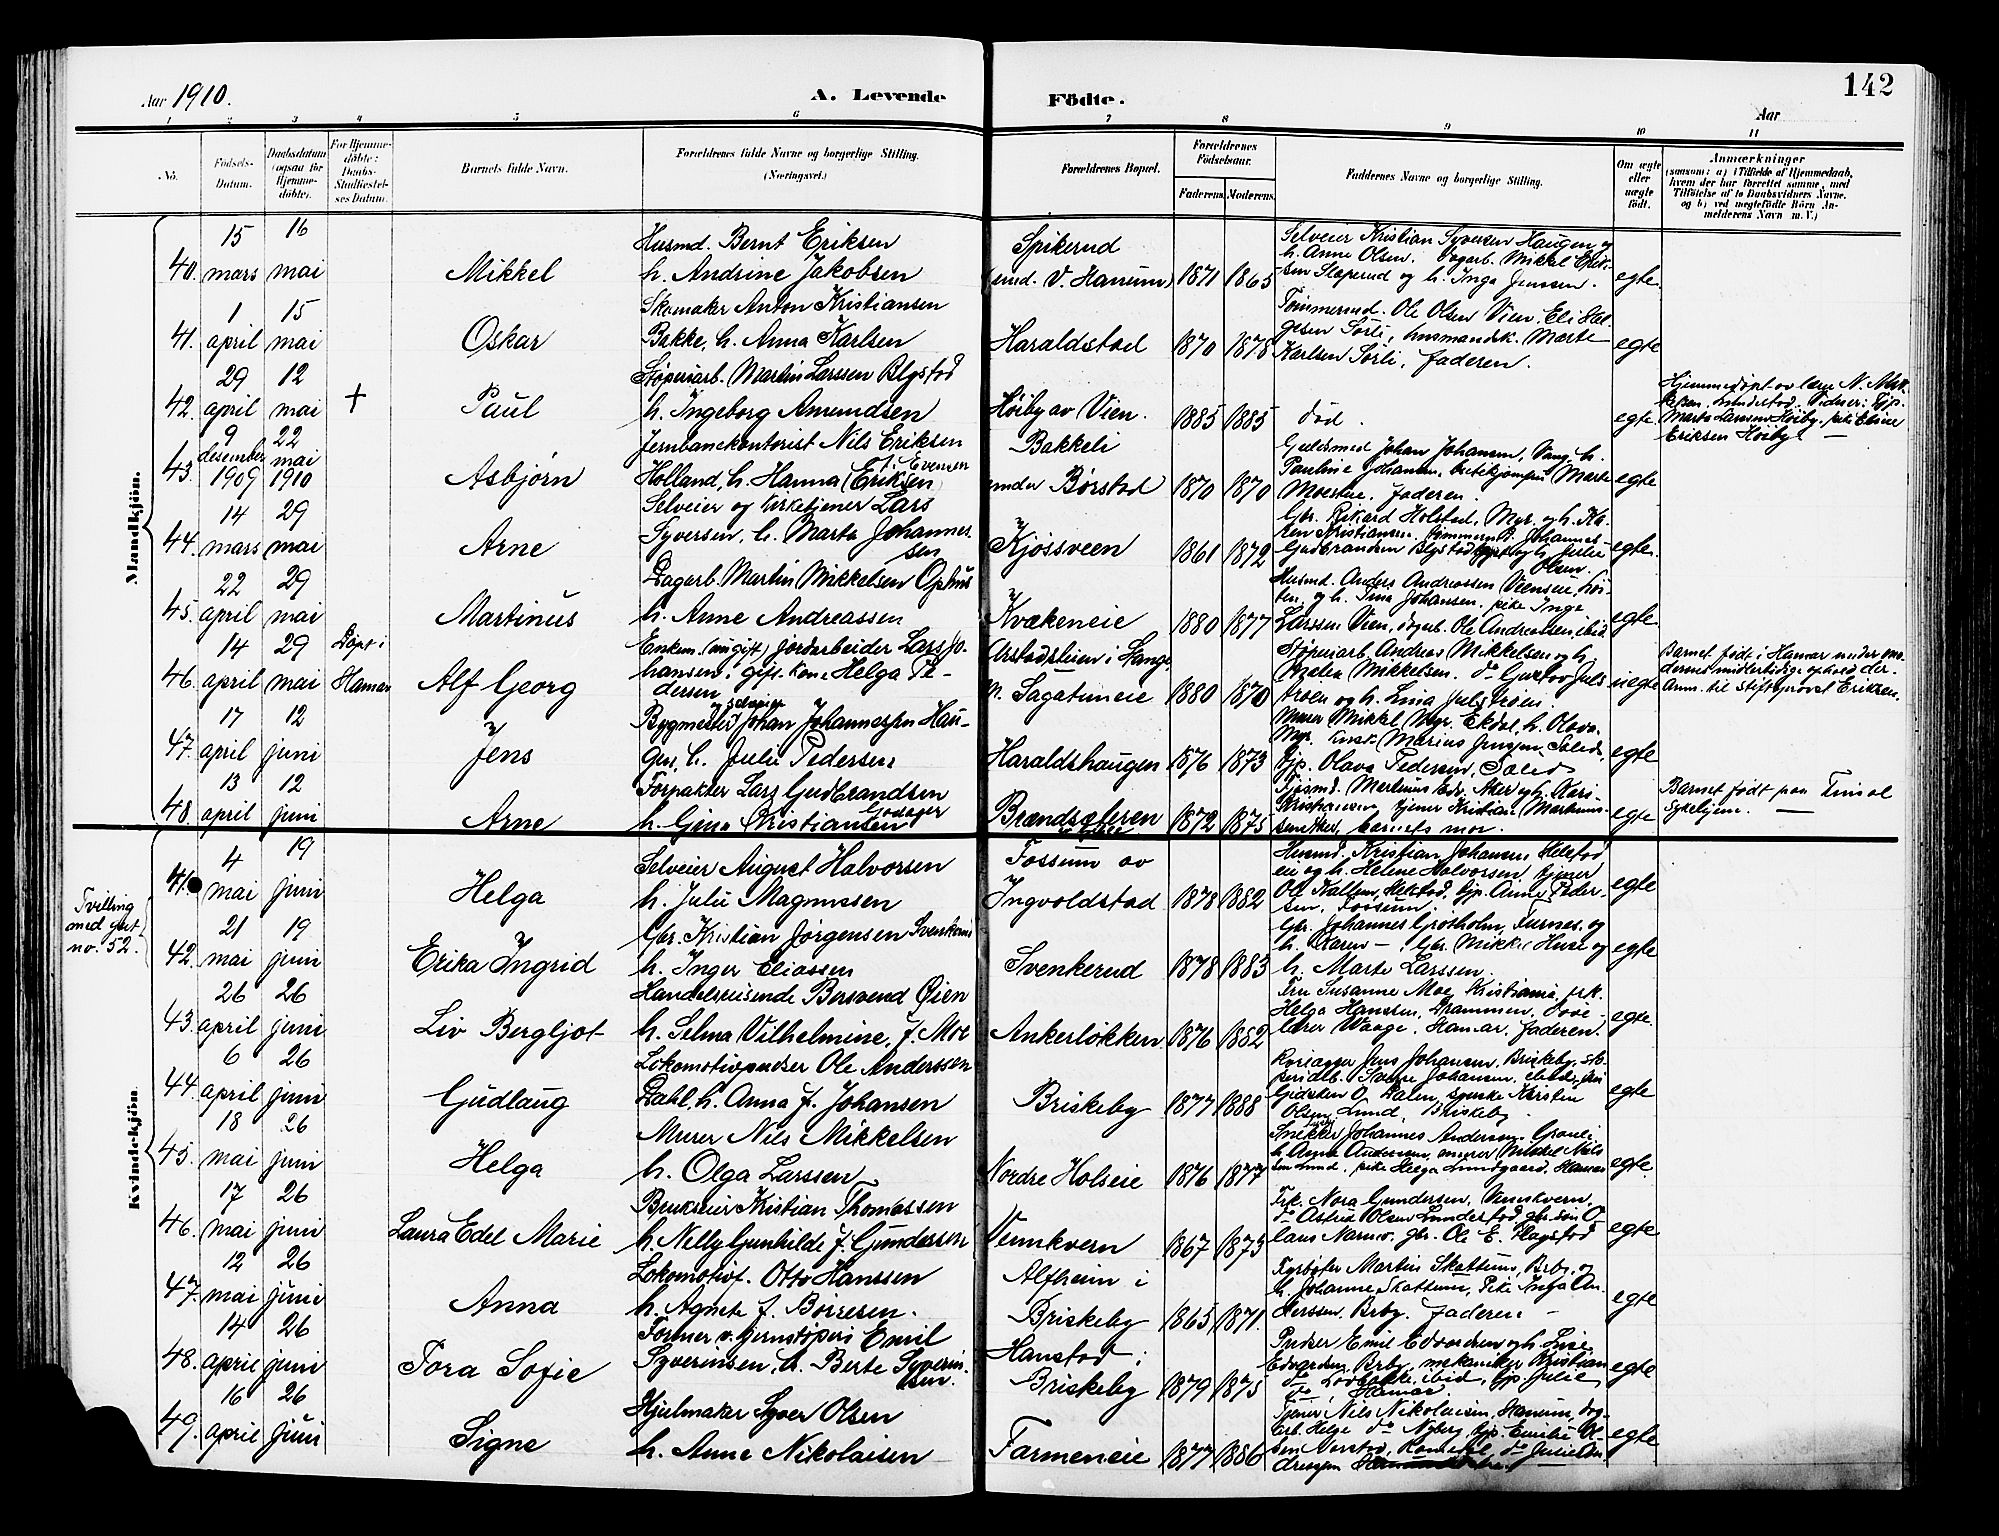 142
Aar 1910.
A. Levende Födte.
Aar
1 2 3 4 5 6 7 8 9 10 11
No.
Födsels-Datum.
Daabsdatum (ogsaa for Hjemme-döbte).
For Hjemme-döbte: Daabs-Stadfæstel-ses Datum.
Barnets fulde Navn.
Forældrenes fulde Navne og borgerlige Stilling.
(Næringsvei.)
Forældrenes Bopæl.
Forældrenes Födselsaar.
Faderens. Moderens.
Faddernes Navne og borgerlige Stilling.
Om ægte eller uægte födt.
Anmærkninger
(saasom: a) i Tilfælde af Hjemmedaab, hvem der har forrettet samme, med Tilföielse af to Daabsvidners Navne, og b) ved uegtefödte Börn Anmelderens Navn m. V.)
Mandkjön.
40. 15 mars 16 mai Mikkel Husmd. Bernt Eriksen h. Andrine Jakobsen Spikerud (med. V. Hanum) 1871 1865 Selveier Kristian Syversen Haugen og h. Anne Olsen. Dagarb. Mikkel Erik-sen Slaperud og h. Inga Jenssen. egte.
41. 1 april 15 mai Oskar Skomaker Anton Kristiansen Bakke, h. Anna Karlsen Haraldstad 1870 1878 Tømmermd. Ole Olsen Vien, Eli Hel-gesen Sørli, husmandsk. Marte Karlsen Sørli, faderen. egte
42. 29 april 12 mai + Paul Støperiarb. Martin Larssen Blystad h. Ingeborg Amundsen Høiby av Vien. 1885 1885 død. egte Hjemmedøpt av lærer N. Lundestad. Vidner: Gjp. Marta Larssen Høiby, pike Eline Eriksen Høiby. —
43. 9 desember 1909 22 mai 1910 Asbjørn Jernbanekontorist Nils Eriksen Holland, h. Hanna (Eriksen) f. Evensen Bakkeli under Børstad 1870 1870 Guldsmed Johan Johansen, Vang, h. Pauline Johansen, Marte Moestue. Faderen. egte
44. 14 mars 29 mai Arne Selveier og kirketjener Lars Syversen, h. Marta Johannes-sen Kjøssveen 1861 1872 Gbr. Rikard Holstad, Myr, og h. Ka-ren Kristiansen. Tømmermd. Johannes Gudbrandsen Blystad og h. Julie Olsen. egte.
45. 22 april 29 mai Martinus Dagarb. Martin Mikkelsen Ophus h. Anne Andreassen Kvækeneie 1880 1877 Husmd. Anders Andreassen Vienseie, Løi-ten, og h. Tina Johansen, pike Inga Larssen Vien, dagarb. Ole Andreassen ibid. egte
46. 14 april 29 mai Døpt i Hamar Alf Georg Enkem. (ungift) jordarbeider Lars Jo-hansen, gift kone Helga Pe-dersen Arstadseien i Stange, m. Sagatuneie 1880 1870 Støperiarb. Andreas Mikkelsen og h. Malen Mikkelsen. do Gustav Juls-troen og h. Lina Julstrøen. uegte Barnet født i Hamar under mo-derens midlertidige ophold der. Anm. til stiftsprovst Eriksen.
47. 17 april 12 juni Jens Bygmester og selveier Johan Johannessen Hau-gen, h. Julie Pedersen Haraldshaugen 1876 1873 Murer Mikkel Myr, Ekdal, h. Olava Myr. Ensk. Marius Jenssen, Soled, Gjp. Olava Pedersen, Soled egte
48. 13 april 12 juni Arne Forpakter Lars Gudbrandsen h. Gina Kristiansen Godager Brændsæteren 1872 1875 Gjæsmd. Martinus Edv. Aker og h. Kari Kristiansen, tjener Kristian Martinus-sen Aker, barnets mor. egte Barnet født paa Finsal Sykehjem. —
Kvindekjön.
Tvilling med gut no. 52.
41. 4 mai 19 juni Helga Selveier August Halvorsen h. Julie Magnussen Fossum av Ingvoldstad 1878 1882 Husmd. Kristian Johansen Helstad-eie og h. Helene Halvorsen, tjener Ole Karlsen, Hekstad, Gjp. Anne Peder-sen, Fossum. egte
42. 21 mai 19 juni Erika Ingrid Gbr. Kristian Jørgensen Svenkerud h. Inger Eliassen Svenkerud 1878 1883 Gbr. Johannes Gjøsholm, Furnes, og h. Karen —, Gbr. Mikkel Huse og h. Marte Larssen. egte
43. 26 april 26 juni Liv Bergljot Handelsreisende Bersvend Øien h. Selma Vilhelmine, f. Moe Ankerløkken 1876 1882 Fru Susanne Moe, Kristiania, frk. Helga Hanssen, Drammen, døve-lærer Waage, Hamar, faderen. egte.
44. 6 april 26 juni Gudlaug Lokomotivpudser Ole Anderssen Dahl, h. Anna f. Johansen Briskeby 1877 1888 Jens Johansen, Briskeby, Sverre Johansen, Gidsken O. Dalen, Kirsten Olsen Lund, Briskeby. egte
45. 18 mai 26 juni Helga Murer Nils Mikkelsen h. Olga Larssen Nordre Holseie 1876 1877 Snekker Johannes Anderssen Granli h. Anna Anderssen, murer Mikkel Nils-sen Lund, pike Helga Lundgaard, Hamar egte.
46. 17 mai 26 juni Laura Edel Marie Brukseier Kristian Thomassen h. Nelly Gunhilde f. Gundersen Vennkvern 1867 1873 Frk. Nora Gundersen, Vennkvern, do Astrid Olsen Lundestad, gbr.søn O-laus Narmo, gbr. Ole E. Flagstad egte
47. 12 mai 26 juni Anna Lokomotivf. Otto Hanssen h. Agnete f. Børresen. Alfheim i Briskeby 1865 1871. Fyrbøter Martin Skattum, Brby, og h. Johanne Skattum, Pike Inga An-derssen, Brby. Faderen — egte
48. 14 april 26 juni Tora Sofie Former v. jernstøperi Emil Syverinsen, h. Berte Syverin-sen. Hanstad i Briskeby 1879 1875 Pudser Emil Edvardsen og h. Lise Edvardsen Brby, mekaniker Kristian do Lovbakke, ibid, Gjp. Julie do Hamar. egte
49. 16 april 26 juni Signe Hjulmaker Syver Olsen h. Anne Nikolaisen Farmeneie 1877 1886 Tjener Nils Nikolaisen, Hanum, dag-arb. Helge do Nyberg, Gjp. Emilie Ol-sen Norstad, Romedal, do Julie An-dressen egte